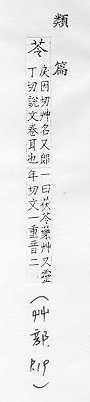 類篇
苓
戾因切艸名又郎
丁切說文卷耳也
一曰茯苓藥艸又靈
年切文一重音二
(艸部P.19)